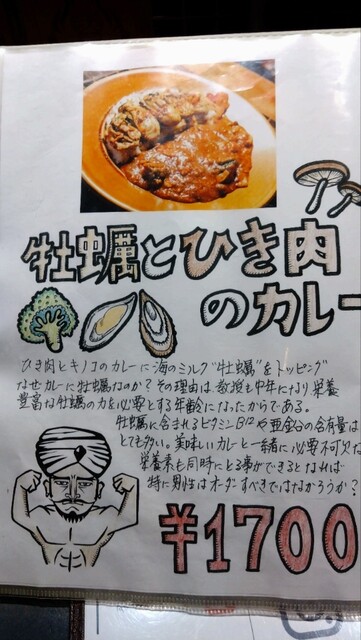 牡蠣とひき肉
のカレー
ひき肉とキノコのカレーに海のミルク"牡蠣"をトッピング
なぜカレーに牡蠣なのか?その理由は教授も中年になり栄養
豊富な牡蠣の力を必要とする年齢になったからである。
牡蠣に含まれるビタミンB12や亜鉛分の含有量は
とても多い。美味しいカレーと一緒に必要不可欠な
栄養素も同時にとる事ができるとなれば
特に男性はオーダーすべきではなかろうか?
¥1700